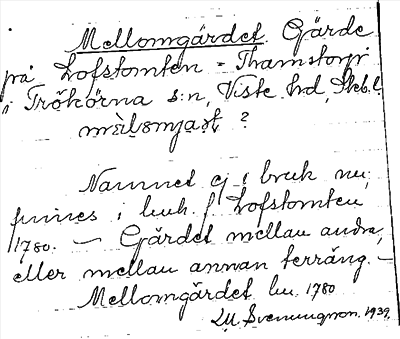 Mellomgärdet Gärde
på Lofstomten - Thamstorp
i Trökörna s:n, Viste hd, Skb.l.
Namnet ej i bruk nu;
finnes i huh. f. Lofstomten
1780. — Gärdet mellan andra,
eller mellan annan terräng. —
Mellomgärdet hu. 1780
Svenungsson. 1939.